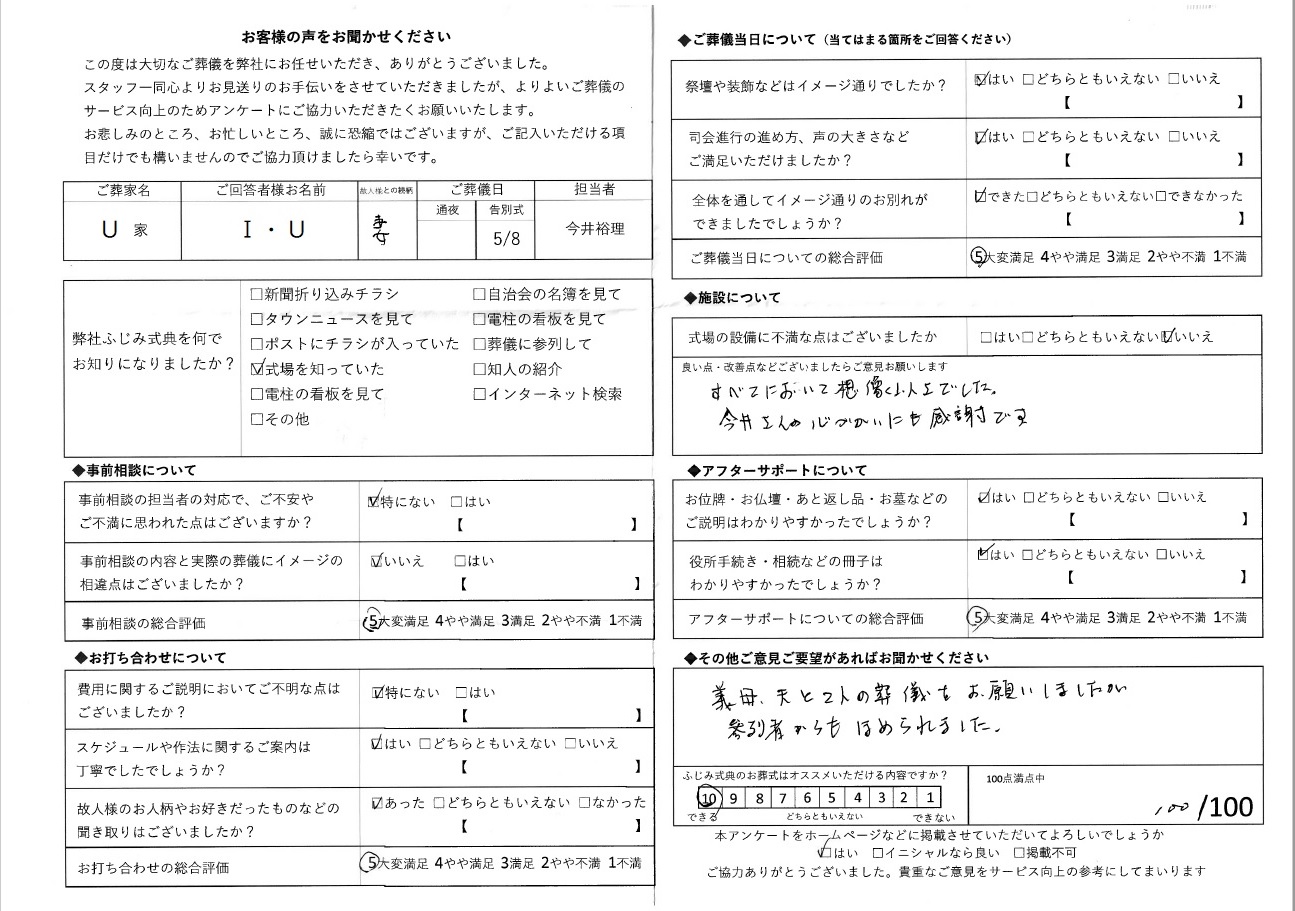 お客様の声をお聞かせください
この度は大切なご葬儀を弊社にお任せいただき、ありがとうございました。
スタッフ一同心よりお見送りのお手伝いをさせていただきましたが、よりよいご葬儀の
サービス向上のためアンケートにご協力いただきたくお願いいたします。
お悲しみのところ、お忙しいところ、誠に恐縮ではございますが、ご記入いただける項
目だけでも構いませんのでご協力頂けましたら幸いです。
ご葬家名 ご回答者様お名前 故人様との続柄 ご葬儀日 担当者
通夜 告別式
U 家 I・U 妻 5/8 今井裕理
弊社ふじみ式典を何で
お知りになりましたか？
□新聞折り込みチラシ □自治会の名簿を見て
□タウンニュースを見て □電柱の看板を見て
□ポストにチラシが入っていた □葬儀に参列して
☑式場を知っていた □知人の紹介
□電柱の看板を見て □インターネット検索
□その他
◆事前相談について
事前相談の担当者の対応で、ご不安や
ご不満に思われた点はございますか？
☑特にない □はい
【 】
事前相談の内容と実際の葬儀にイメージの
相違点はございましたか？
☑いいえ □はい
【 】
事前相談の総合評価 5大変満足 4やや満足 3満足 2やや不満 1不満
◆お打ち合わせについて
費用に関するご説明においてご不明な点は
ございましたか？
☑特にない □はい
【 】
スケジュールや作法に関するご案内は
丁寧でしたでしょうか？
☑はい □どちらともいえない □いいえ
【 】
故人様のお人柄やお好きだったものなどの
聞き取りはございましたか？
☑あった □どちらともいえない □なかった
【 】
お打ち合わせの総合評価 5大変満足 4やや満足 3満足 2やや不満 1不満
◆ご葬儀当日について（当てはまる箇所をご回答ください）
祭壇や装飾などはイメージ通りでしたか？
☑はい □どちらともいえない □いいえ
【 】
司会進行の進め方、声の大きさなど
ご満足いただけましたか？
☑はい □どちらともいえない □いいえ
【 】
全体を通してイメージ通りのお別れが
できましたでしょうか？
☑できた□どちらともいえない□できなかった
【 】
ご葬儀当日についての総合評価 5大変満足 4やや満足 3満足 2やや不満 1不満
◆施設について
式場の設備に不満な点はございましたか □はい□どちらともいえない☑いいえ
良い点・改善点などございましたらご意見お願いします
すべてにおいて想像以上でした。
今井さんの心づかいにも感謝です
◆アフターサポートについて
お位牌・お仏壇・あと返し品・お墓などの
ご説明はわかりやすかったでしょうか？
☑はい □どちらともいえない □いいえ
【 】
役所手続き・相続などの冊子は
わかりやすかったでしょうか？
☑はい □どちらともいえない □いいえ
【 】
アフターサポートについての総合評価 5大変満足 4やや満足 3満足 2やや不満 1不満
◆その他ご意見ご要望があればお聞かせください
義母、夫と2人の葬儀をお願いしましたが
参列者からもほめられました。
ふじみ式典のお葬式はオススメいただける内容ですか？
10 9 8 7 6 5 4 3 2 1
できる どちらともいえない できない
100点満点中
100/100
本アンケートをホームページなどに掲載させていただいてよろしいでしょうか
☑はい □イニシャルなら良い □掲載不可
ご協力ありがとうございました。貴重なご意見をサービス向上の参考にしてまいります